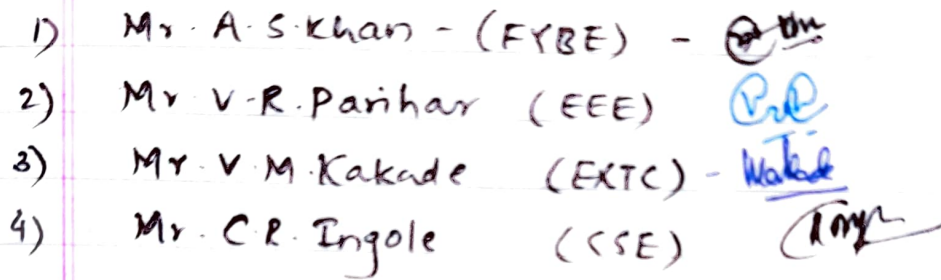 1) Mr. A. S. Khan - (FYBE) -
2) Mr V.R. Parihar (EEE)
3) Mr. V. M. Kakade (EXTC) - Kakade
4) Mr. C. R. Ingole (CSE)